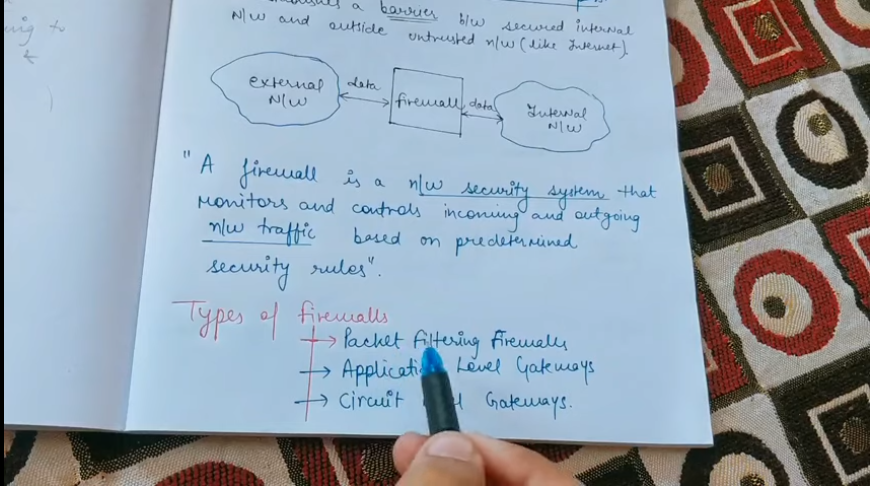 ing to
a barrier b/w secured internal
N/W and outside untrusted n/w (like Internet).
external N/W
data
firewall
data
Internal N/W
"A firewall is a n/w security system that
monitors and controls incoming and outgoing
n/w traffic based on predetermined
security rules".
Types of firewalls
→ Packet Filtering Firewalls
→ Level Gateways
→ Circuit Gateways.